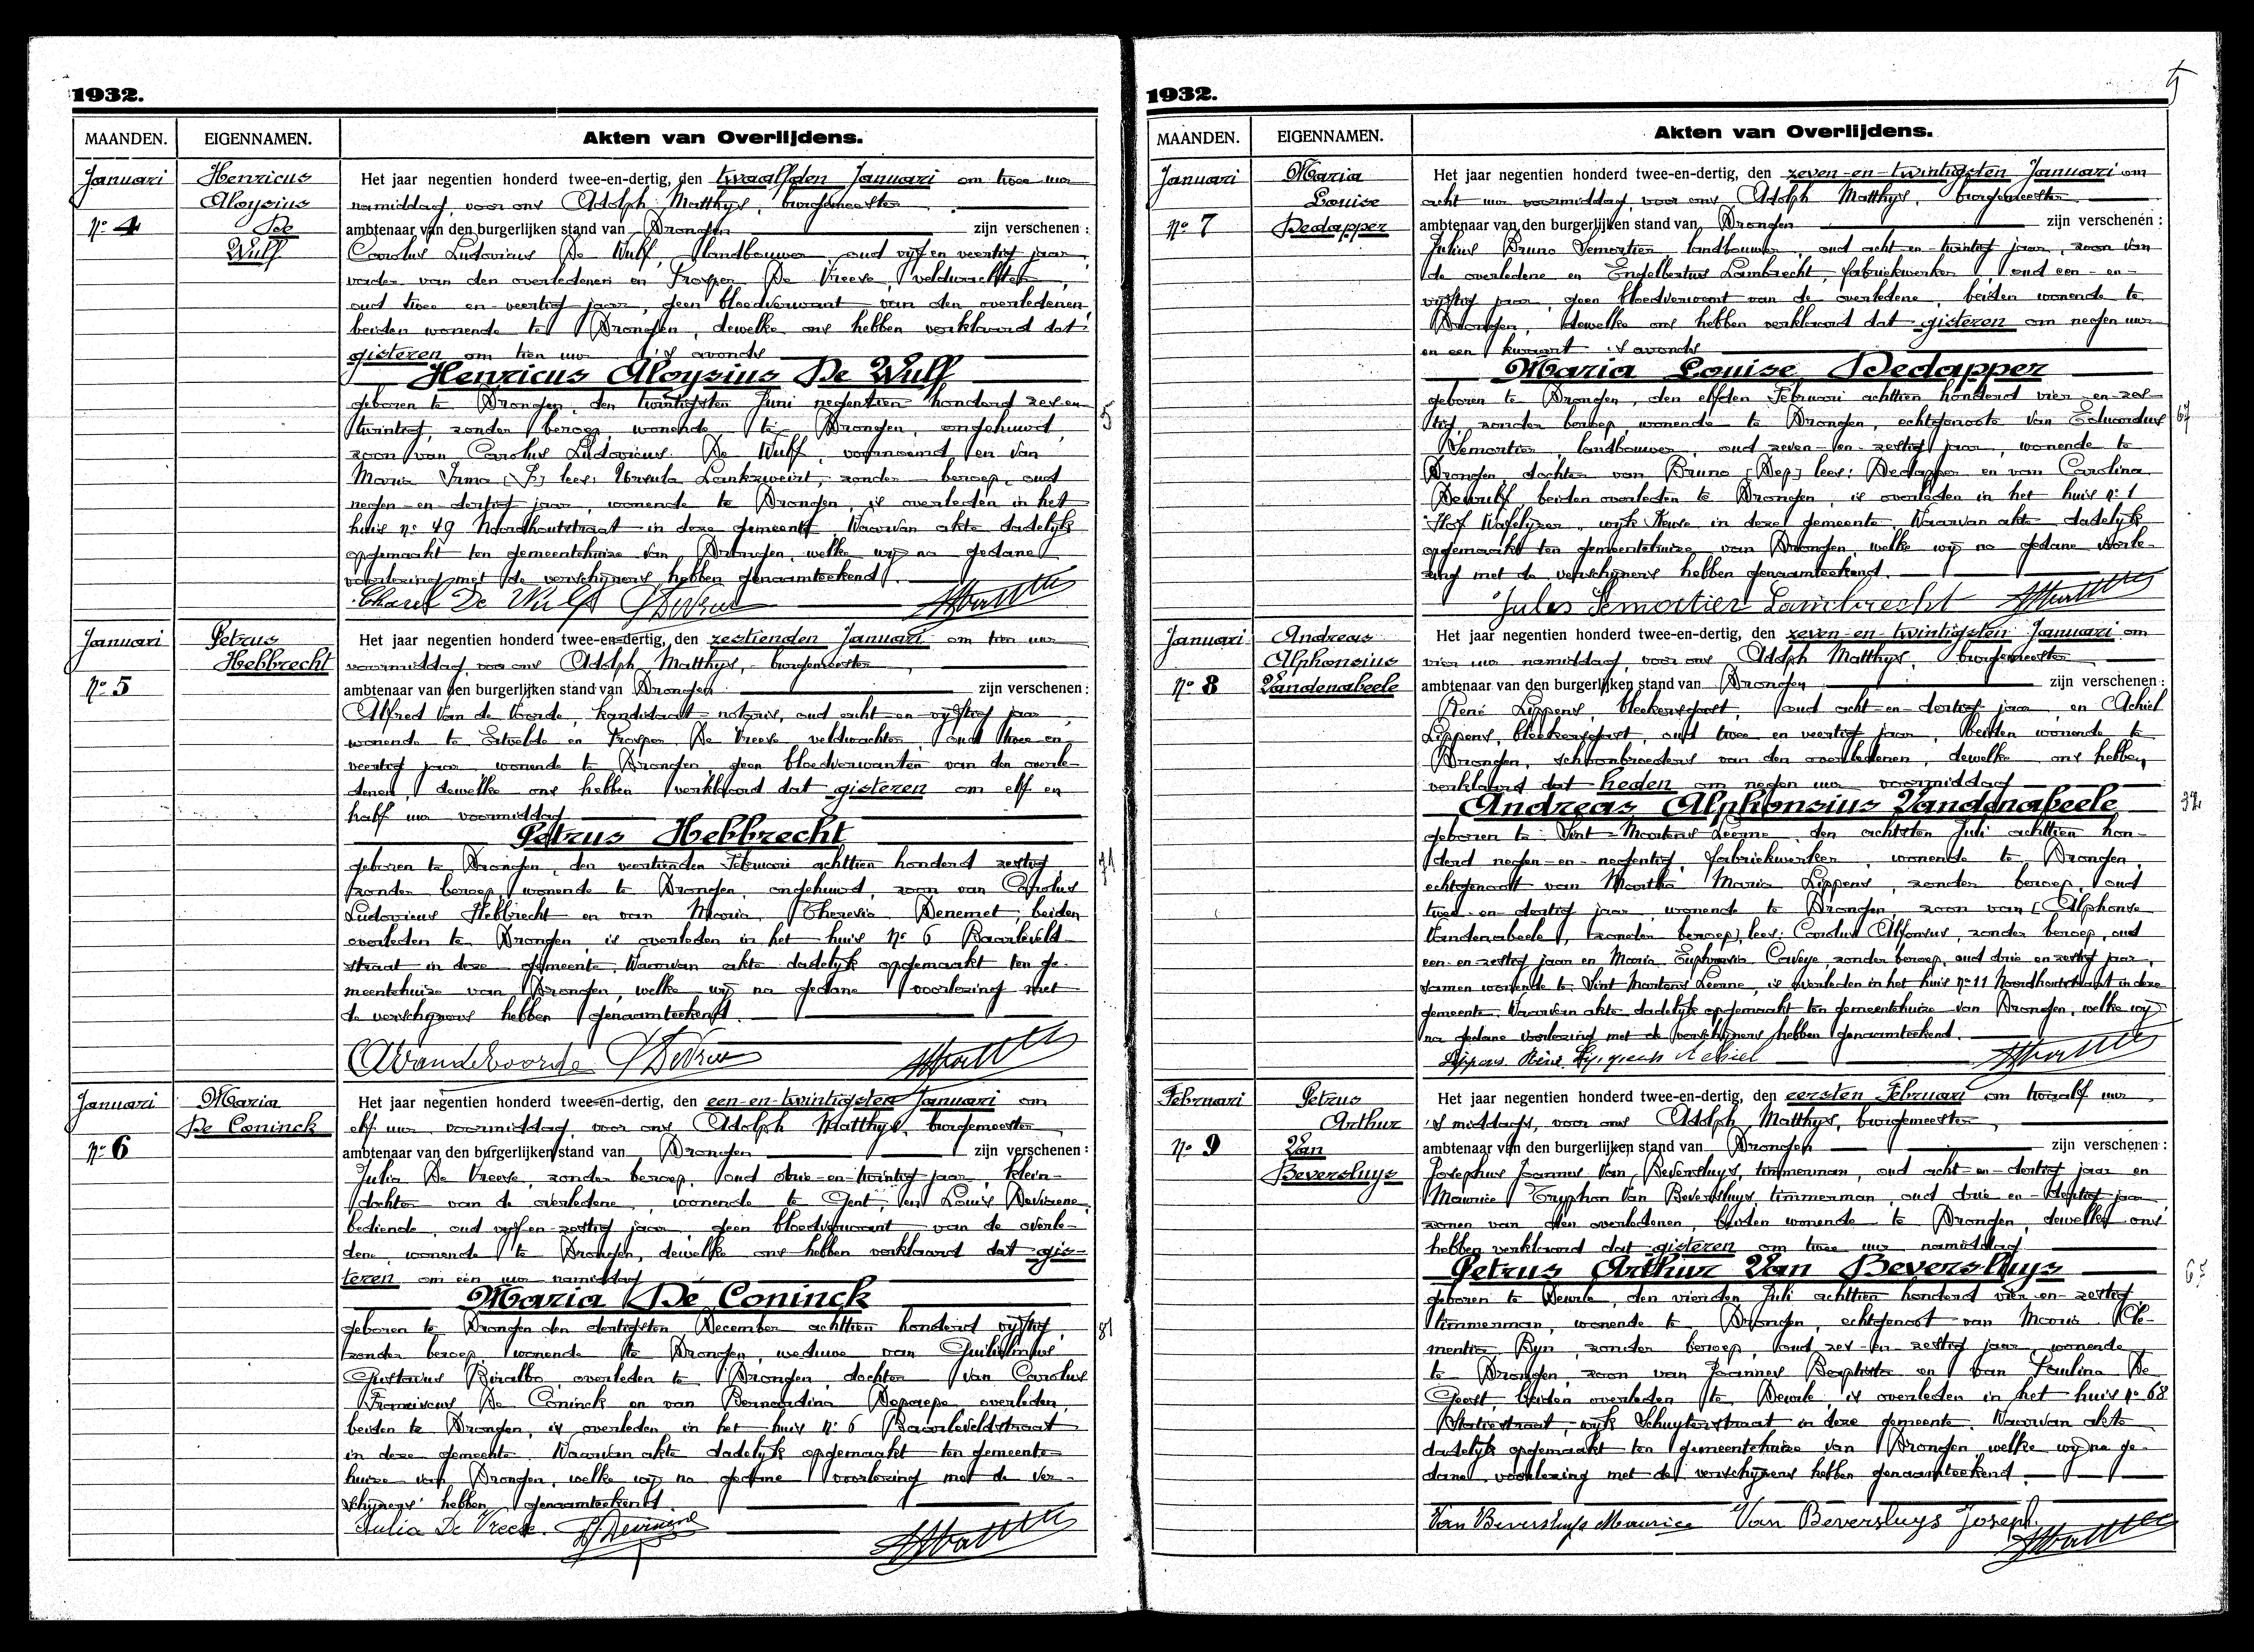 1932.
MAANDEN.
EIGENNAMEN.
Akten van Overlijdens.
Januari
Nº 4
Henricus
Aloysius
De
Wulf
Het jaar negentien honderd twee-en-dertig, den twaalfden Januari om twee uur
namiddag, voor ons Adolph Matthys, burgemeester
ambtenaar van den burgerlijken stand van Drongen zijn verschenen:
Carolus Ludovicus De Wulf, landbouwer, oud vijf en veertig jaar,
vader van den overledenen en Prosper De Vreese, veldwachter,
oud twee en veertig jaar, geen bloedverwant van den overledenen,
beiden wonende te Drongen, dewelke ons hebben verklaard dat
gisteren om tien uur 's avonds
Henricus Aloysius De Wulf
geboren te Drongen, den twintigsten Juni negentien honderd zes en
twintig, zonder beroep, wonende te Drongen, ongehuwd,
zoon van Carolus Ludovicus De Wulf, voornoemd, en van
Maria Irma lees: Ursula zonder beroep, oud
negen-en-dertig jaar, wonende te Drongen, is overleden in het
huis nº 49 Noordhoutstraat in deze gemeente. Waarvan akte dadelijk
opgemaakt ten gemeentehuize van Drongen, welke wij na gedane
voorlezing met de verschijners hebben genaamteekend.
Charel De Wulf
5
Januari
Nº 5
Petrus
Hebbrecht
Het jaar negentien honderd twee-en-dertig, den zestienden Januari om tien uur
voormiddag, voor ons Adolph Matthys, burgemeester
ambtenaar van den burgerlijken stand van Drongen zijn verschenen:
Alfred Van de Voorde, kandidaat-notaris, oud acht-en-vijftig jaar,
wonende te Ertvelde en Prosper De Vreese veldwachter, oud twee en
veertig jaar wonende te Drongen, geen bloedverwanten van den overle-
denen, dewelke ons hebben verklaard dat gisteren om elf en
half uur voormiddag
Petrus Hebbrecht
geboren te Drongen, den veertienden Februari achttien honderd zestig,
zonder beroep, wonende te Drongen, ongehuwd, zoon van Carolus
Ludovicus Hebbrecht en van Maria Theresia Denemet, beiden
overleden te Drongen, is overleden in het huis Nº 6 Baarleveld-
straat in deze gemeente. Waarvan akte dadelijk opgemaakt ten ge-
meentehuize van Drongen, welke wij na gedane voorlezing met
de verschijners hebben genaamteekend.
AVandevoorde
71
Januari
Nº 6
Maria
De Coninck
Het jaar negentien honderd twee-en-dertig, den een-en-twintigsten Januari om
elf uur voormiddag, voor ons Adolph Matthys, burgemeester
ambtenaar van den burgerlijken stand van Drongen zijn verschenen:
Julia De Vreese, zonder beroep, oud drie-en-twintig jaar, klein-
dochter van de overledene, wonende te Gent, en Louis Deviaene,
bediende, oud vijf-en-zestig jaar, geen bloedverwant van de overle-
dene, wonende te Drongen, dewelke ons hebben verklaard dat gis-
teren om één uur namiddag
Maria De Coninck
geboren te Drongen den dertigsten December achttien honderd vijftig,
zonder beroep, wonende te Drongen, weduwe van Guilielmus
Gustavus Biralbo, overleden te Drongen, dochter van Carolus
Franciscus De Coninck en van Bernardina Depaepe, overleden,
beiden te Drongen, is overleden in het huis Nº 6 Baarleveldstraat
in deze gemeente. Waarvan akte dadelijk opgemaakt ten gemeente-
huize van Drongen, welke wij na gedane voorlezing met de ver-
schijners hebben genaamteekend.
Julia De Vreese.
81
1932.
MAANDEN.
EIGENNAMEN.
Akten van Overlijdens.
Januari
Nº 7
Maria
Louise
Dedapper
Het jaar negentien honderd twee-en-dertig, den zeven-en-twintigsten Januari om
acht uur voormiddag, voor ons Adolph Matthys, burgemeester
ambtenaar van den burgerlijken stand van Drongen zijn verschenen:
Julius Bruno Semortier landbouwer, oud acht-en-twintig jaar, zoon van
de overledene en Engelbertus Lambrecht, fabriekwerker, oud een-en-
vijftig jaar, geen bloedverwant van de overledene, beiden wonende te
Drongen, dewelke ons hebben verklaard dat gisteren om negen uur
en een kwaart 's avonds
Maria Louise Dedapper
geboren te Drongen, den elfden Februari achttien honderd vier-en-zes-
tig, zonder beroep, wonende te Drongen, echtgenoote van Eduardus
Semortier, landbouwer, oud zeven-en-zestig jaar, wonende te
Drongen, dochter van Bruno [Dep] lees: Dedapper en van Carolina
Dewulf, beiden overleden te Drongen, is overleden in het huis nº 1
Hof Walelyzer, wijk Keuze in deze gemeente. Waarvan akte dadelijk
opgemaakt ten gemeentehuize van Drongen, welke wij na gedane voorle-
zing met de verschijners hebben genaamteekend.
Jules Semortier Lambrecht
67
Januari
Nº 8
Andreas
Alphonsius
Vandenabeele
Het jaar negentien honderd twee-en-dertig, den zeven-en-twintigsten Januari om
vier uur namiddag, voor ons Adolph Matthys, burgemeester
ambtenaar van den burgerlijken stand van Drongen zijn verschenen:
René Lippens, bleekersgast, oud acht-en-dertig jaar, en Achiel
Lippens, bleekersgast, oud twee en veertig jaar, beiden wonende te
Drongen, schoonbroeders van den overledenen, dewelke ons hebben
verklaard dat heden om negen uur voormiddag
Andreas Alphonsius Vandenabeele
geboren te Sint-Martens Leerne, den achtsten Juli achttien hon-
derd negen-en-negentig, fabriekwerker, wonende te Drongen,
echtgenoot van Martha Maria Lippens, zonder beroep, oud
twee-en-dertig jaar, wonende te Drongen, zoon van [Alphonse
Vandenabeele, zonder beroep] lees: Carolus Alfonsus, zonder beroep, oud
een-en-zestig jaar en Maria Euphrasia Caveye, zonder beroep, oud drie en zestig jaar,
samen wonende te Sint Martens Leerne, is overleden in het huis Nº 11 Noordhoutstraat in deze
gemeente. Waarvan akte dadelijk opgemaakt ten gemeentehuize van Drongen, welke wij
na gedane voorlezing met de verschijners hebben genaamteekend.
Lippens René Lippens Achiel
32
Februari
Nº 9
Petrus
Arthur
Van
Beversluys
Het jaar negentien honderd twee-en-dertig, den eersten Februari om twaalf uur
's middags, voor ons Adolph Matthys, burgemeester
ambtenaar van den burgerlijken stand van Drongen zijn verschenen:
Josephus Joannes Van Beversluys, timmerman, oud acht-en-dertig jaar en
Maurice Tryphon Van Beversluys, timmerman, oud drie en-dertig jaar,
zonen van den overledenen, beiden wonende te Drongen, dewelke ons
hebben verklaard dat gisteren om twee uur namiddag
Petrus Arthur Van Beversluys
geboren te Deurle, den vierden Juli achttien honderd vier-en-zestig,
timmerman, wonende te Drongen, echtgenoot van Maria Cle-
mentia Ryn, zonder beroep, oud zes-en-zestig jaar, wonende
te Drongen, zoon van Joannes Baptista en van Paulina De
Geest, beiden overleden te Deurle, is overleden in het huis Nº 68
Statiestraat, wijk Schuyterstraat in deze gemeente. Waarvan akte
dadelijk opgemaakt ten gemeentehuize van Drongen welke wij na ge-
dane voorlezing met de verschijners hebben genaamteekend.
Van Beversluys Maurice Van Beversluys Joseph.